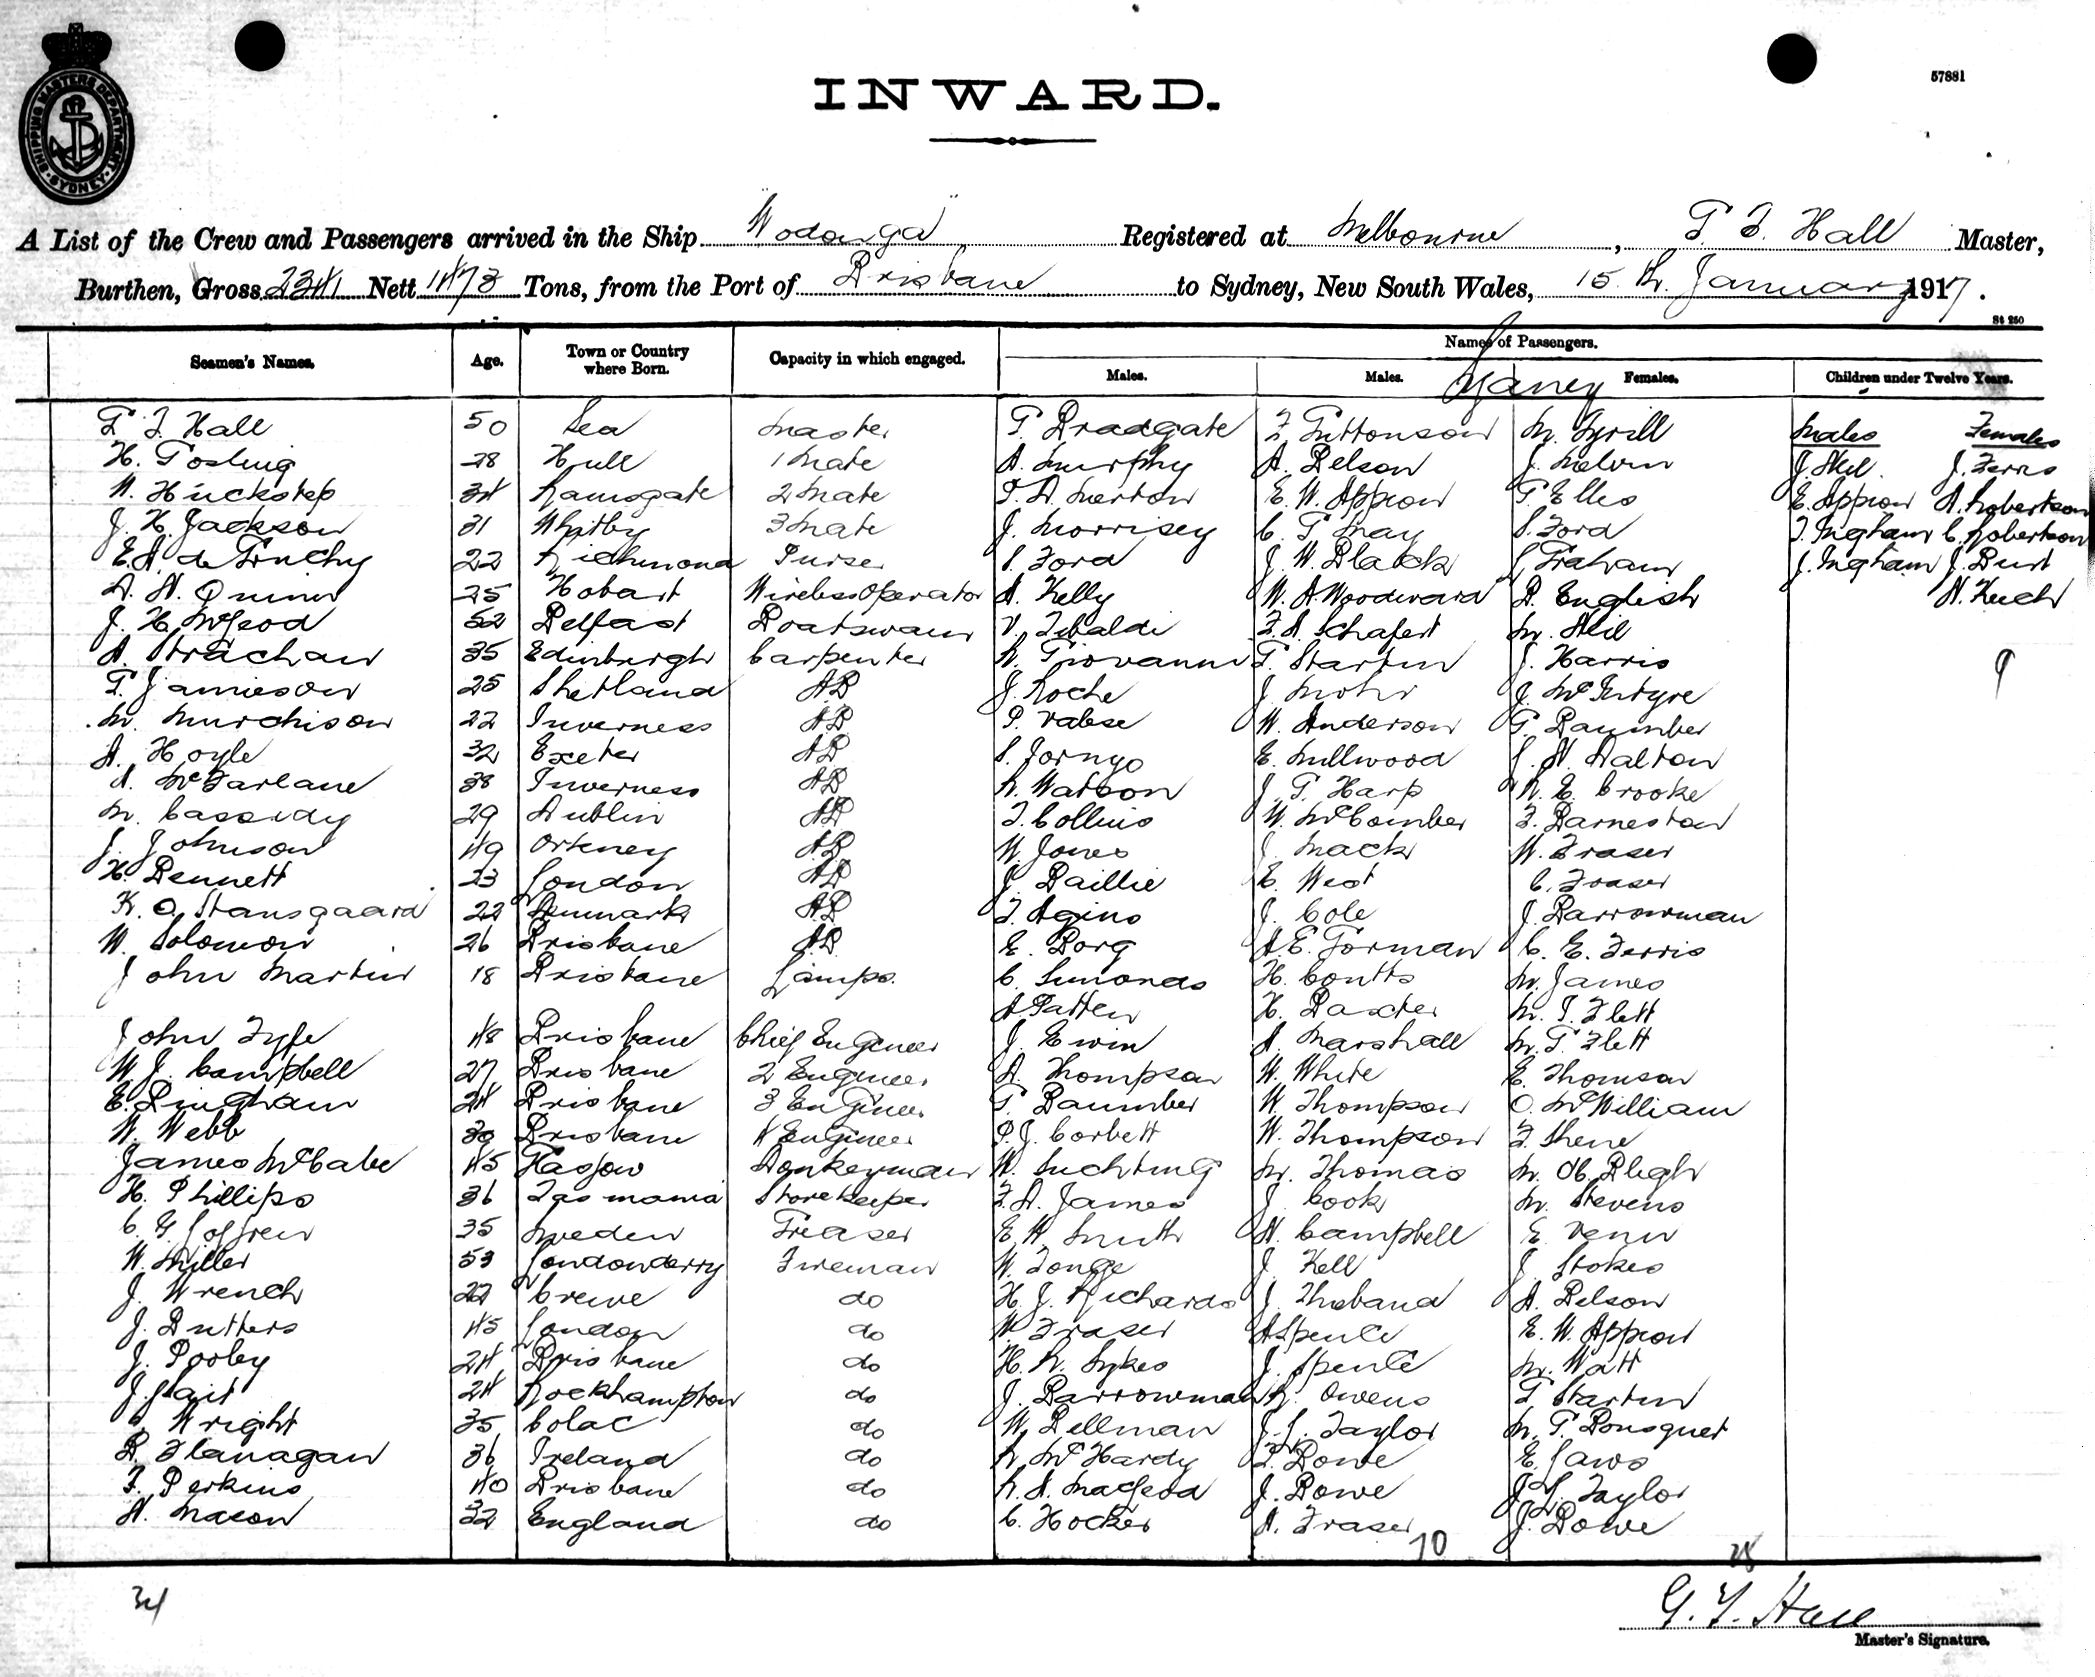 SHIPPING MASTERS DEPARTMENT
SYDNEY
57881
INWARD.
A List of the Crew and Passengers arrived in the Ship "Wodonga" Registered at Melbourne, G. F. Hall Master,
Burthen, Gross 2341 Nett 1473 Tons, from the Port of Brisbane to Sydney, New South Wales, 15th January 1917.
St 250
Seamen's Names. Age. Town or Country where Born. Capacity in which engaged. Names of Passengers.
Males. Males. Females. Children under Twelve Years.
G. F. Hall 50 Sea Master G. Bradgate F. Guttonson M. Tyrill Males Females
H. Gosling 28 Hull 1 Mate A. Murphy A. Belson J. Melvin J. Neil J. Ferris
W. Huckstep 34 Ramsgate 2 Mate P. A. Merton E. W. Appion G. Elles E. Appion A. Robertson
J. H. Jackson 31 Whitby 3 Mate J. Morrisey C. G. May S. Ford F. Ingham C. Robertson
E. A. de Gruchy 22 Richmond Purser S. Ford J. W. Black L. Graham J. Ingham J. Burt
A. W. Quinn 25 Hobart Wireless Operator A. Kelly W. A. Woodward B. English
J. H. McLeod 52 Belfast Boatswain V. Tibaldi F. A. Schafert M. Neil
A. Strachan 35 Edinburgh Carpenter R. Giovanni G. Startin J. Harris 9
G. Jamieson 25 Shetland AB J. Roche J. Mohr J. McIntyre
M. Murchison 22 Inverness AB P. Valese W. Anderson G. Baumber
A. Hoyle 32 Exeter AB E. Millwood S. A. Dalton
A. McFarlane 38 Inverness AB R. Watson J. G. Harp R. E. Crooke
M. Cassidy 29 Dublin AB F. Collins W. McComber F. Barneston
J. Johnson 49 Orkney AB W. Jones J. Mack W. Fraser
H. Bennett 23 London AB J. Baillie E. West C. Fraser
K. O. Stansgaard 22 Denmark AB F. Agius J. Cole J. Barrowman
W. Solomon 26 Brisbane AB E. Borg A. E. Gorman C. E. Ferris
John Martin 18 Brisbane Lamps. C. Simonds H. Coutts M. James
A. Patten H. Baxter M. I. Flett
John Fyfe 48 Brisbane Chief Engineer J. Ewin A. Marshall M. G. Flett
W. J. Campbell 27 Brisbane 2 Engineer A. Thompson W. White E. Thomson
E. Bingham 24 Brisbane 3 Engineer G. Baumber W. Thompson O. McWilliam
W. Webb 30 Brisbane 4 Engineer P. J. Corbett W. Thompson F. Shene
James McCabe 45 Glasgow Donkeyman W. Suchting M. Thomas Bligh
H. Phillips 36 Tasmania Storekeeper F. A. James J. Cook M. Stevens
35 Sweden Greaser E. W. Smith A. Campbell E. Venn
W. Miller 53 Londonderry Fireman W. Tonge J. Kell J. Stokes
J. Wrench 22 Crewe do H. J. Richards J. Thoband A. Belson
J. Butters 45 London do W. Fraser A Spence E. W. Appion
J. Pooley 24 Brisbane do H. R. Sykes J. Spence M. Watt
J. Lait 24 Rockhampton do J. Barrowman R. Owens G Startin
C. Wright 35 Colac do W. Bellman J. L. Taylor M. G. Bousquet
B. Flanagan 36 Ireland do R. McHardy F. Bowe E. Laws
F. Perkins 40 Brisbane do R. A. MacLeod J. Bowe J. L. Taylor
A. Mason 32 England do C. Hocker A. Fraser J. Bowe
70
34
G. F. Hall
Master's Signature.